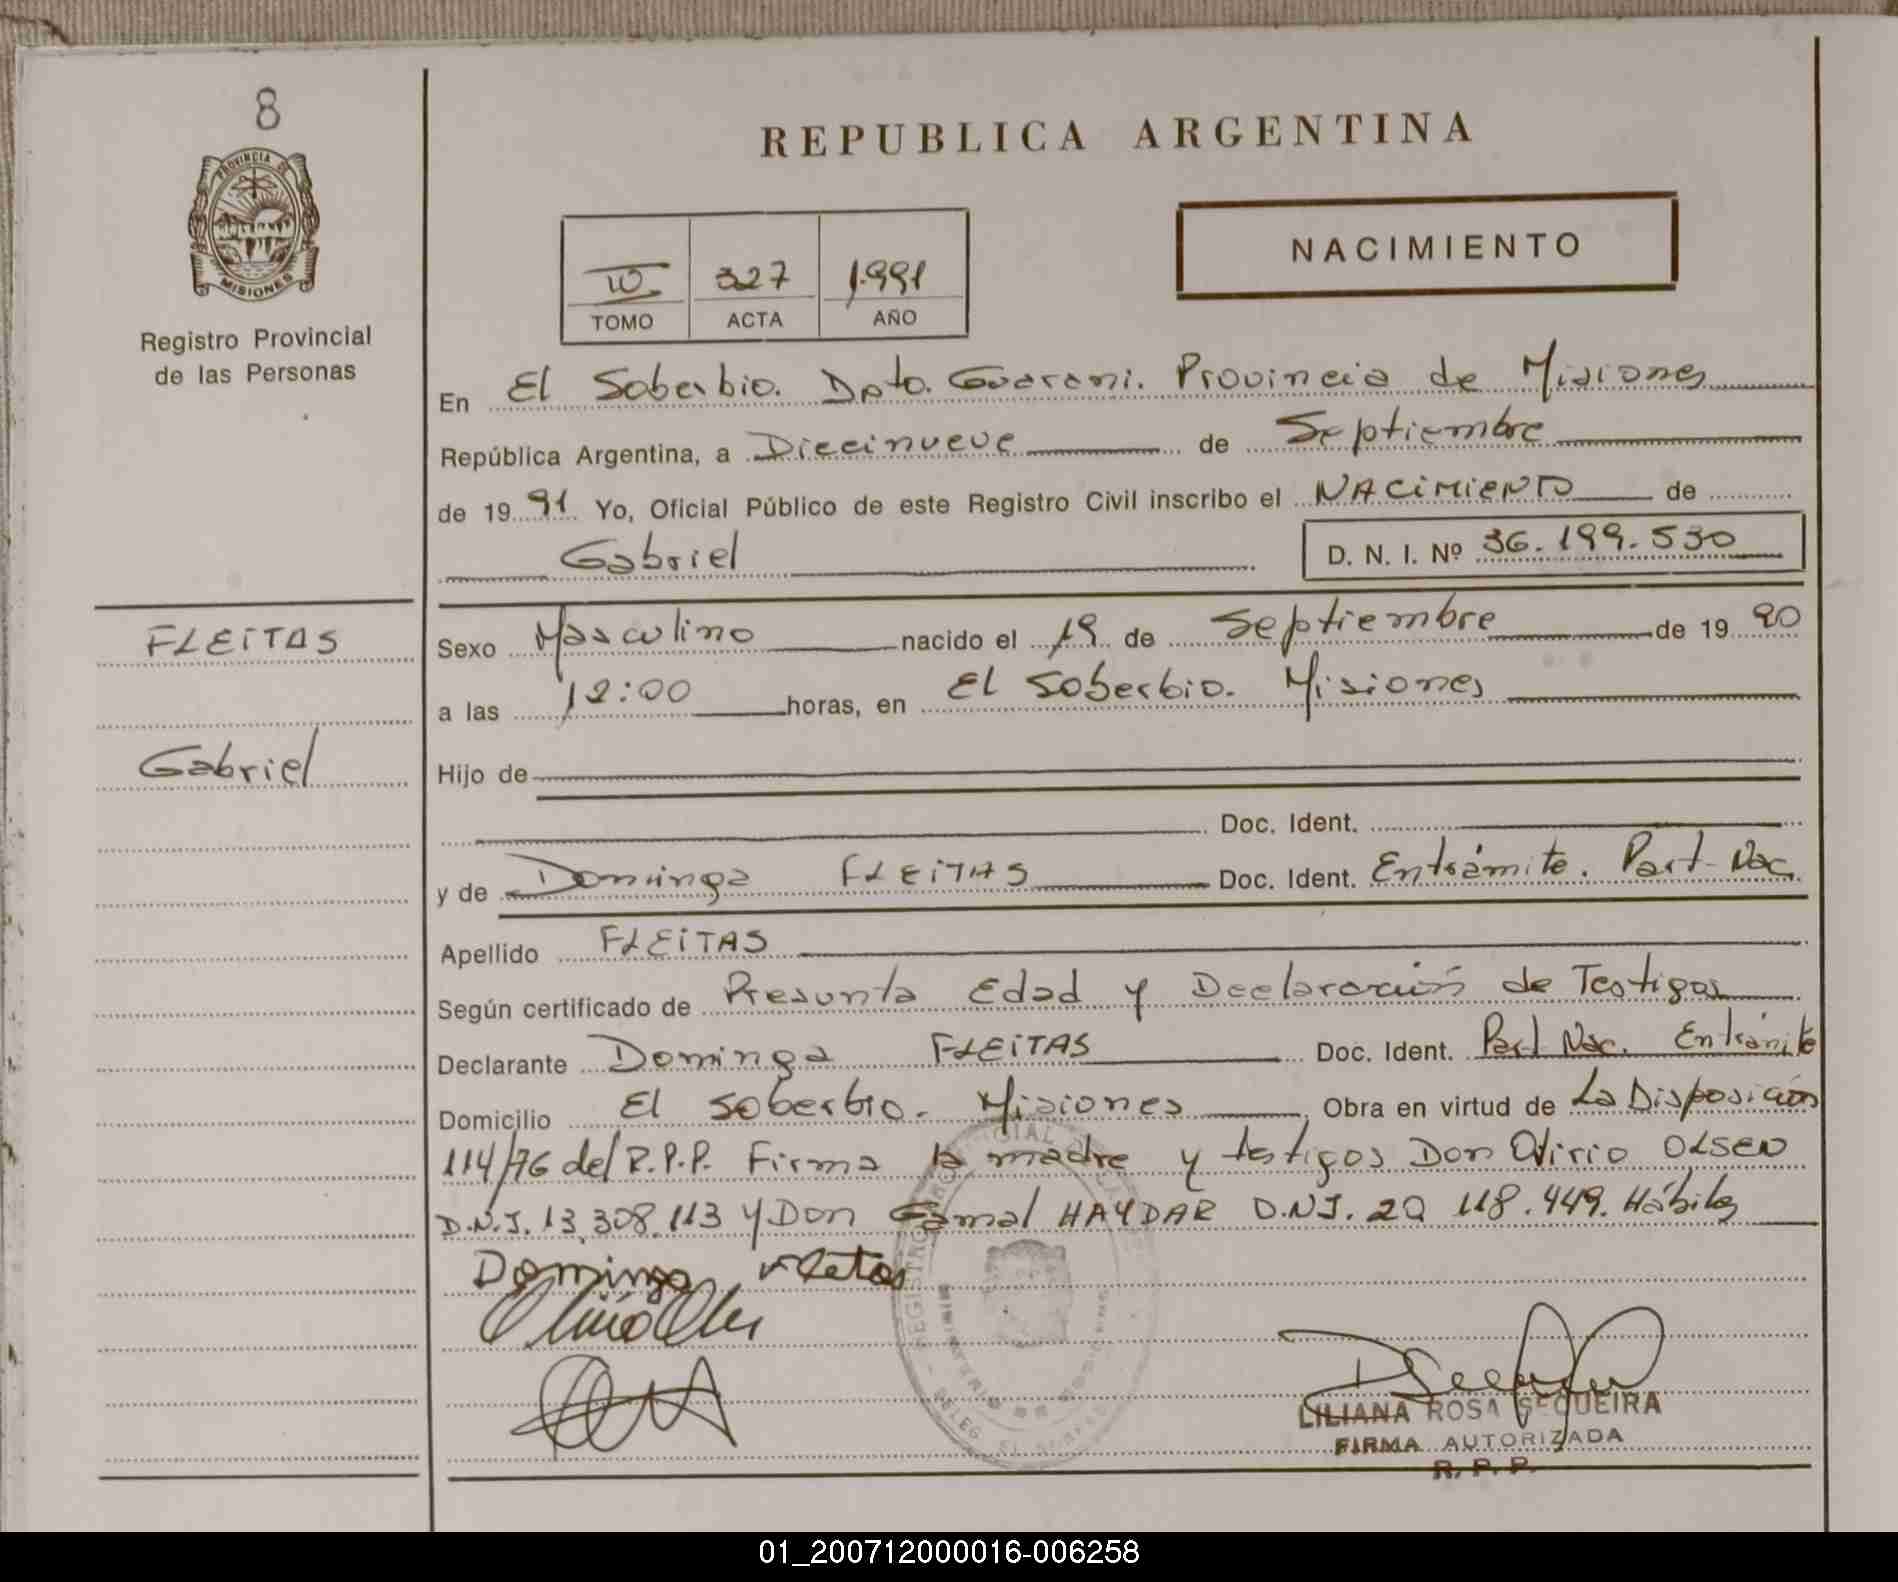 8
PROVINCIA DE
MISIONES
Registro Provincial
de las Personas
REPUBLICA ARGENTINA
NACIMIENTO
327 1.991
TOMO ACTA AÑO
En El Soberbio. Dpto. Guarani. Provincia de Misiones
República Argentina, a Diecinueve de Septiembre
de 19 91 Yo, Oficial Público de este Registro Civil inscribo el NACIMIENTO de
Gabriel D. N. I. Nº 36.199.530
FLEITAS
Gabriel
Sexo Masculino nacido el 19 de Septiembre de 19 90
a las 12:00 horas, en El Soberbio. Misiones
Hijo de
Doc. Ident.
y de Dominga FLEITAS Doc. Ident. Entrámite. Part. Nac.
Apellido FLEITAS
Según certificado de Presunta Edad y Declaración de Testigos
Declarante Dominga FLEITAS Doc. Ident. Part Nac. Entrámite
Domicilio El Soberbio. Misiones Obra en virtud de La Disposición
114/76 del R.P.P. Firma la madre y testigos Don OLSEN
D.N.I. 13.308.113 y Don Gamal HAYDAR D.N.I. 20 118.449. Hábiles
Dominga
LILIANA ROSA SEQUEIRA
FIRMA AUTORIZADA
R. P. P.
01_200712000016-006258